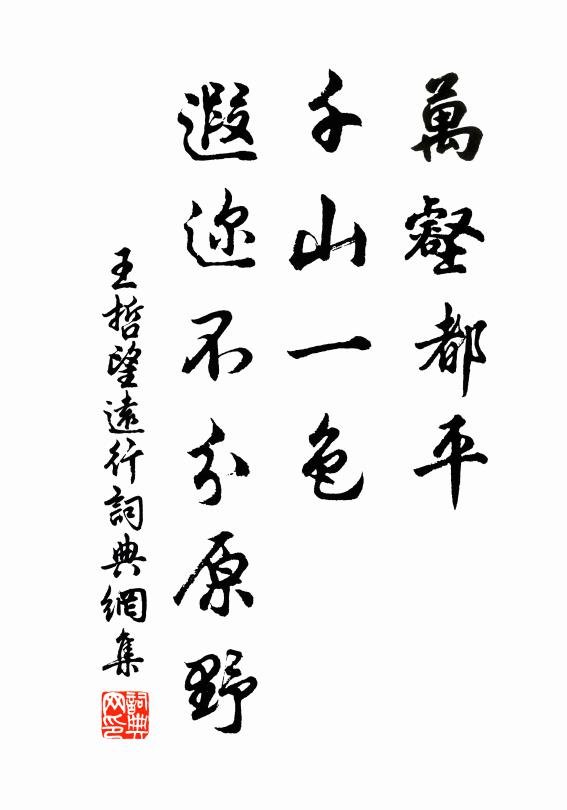 萬壑都平
千山一色
遐迩不分原野
王哲望遠行詞典網集
詞典網印